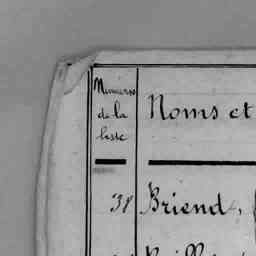 Numéros
de la
liste
Noms et
38 Briend,